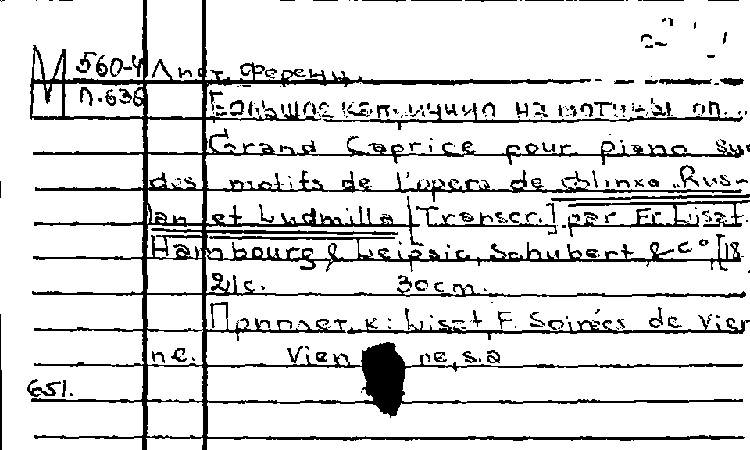 М 560-4 Лист, Ференц.
Л.636 Большое каприччио на мотивы оп...
Grand Caprice pour piano su
des motifs de l'opera de Glinka „Rus-
lan et Ludmilla [Transcr.] par Fr. Liszt.
Hambourg & Leipsic, Schubert & C°, [18
21 c. 30 cm.
Приплет. к: Liszt, F. Soirées de Vien
ne. Vienne, s.a
651.